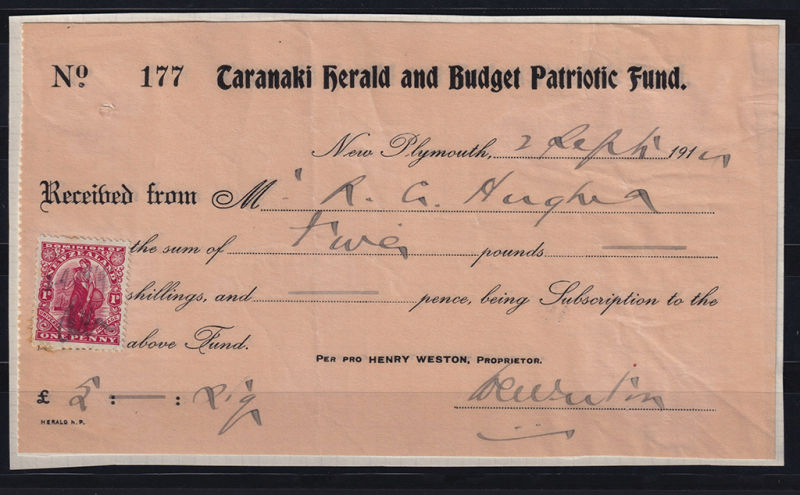 No 177 Taranaki Herald and Budget Patriotic Fund.
New Plymouth, 2 Sept 191
Received from Mr R. G. Hughes
the sum of Five pounds
shillings, and pence, being Subscription to the
above Fund.
DOMINION OF
NEW ZEALAND
1D 1D
ONE PENNY
PER PRO HENRY WESTON, PROPRIETOR.
£ 5 : — :
HERALD N. P.